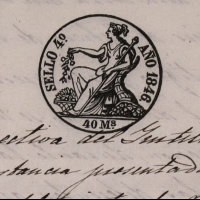 SELLO 4º AÑO 1848
40 Mˢ
ectiva del Institu
stancia presentada